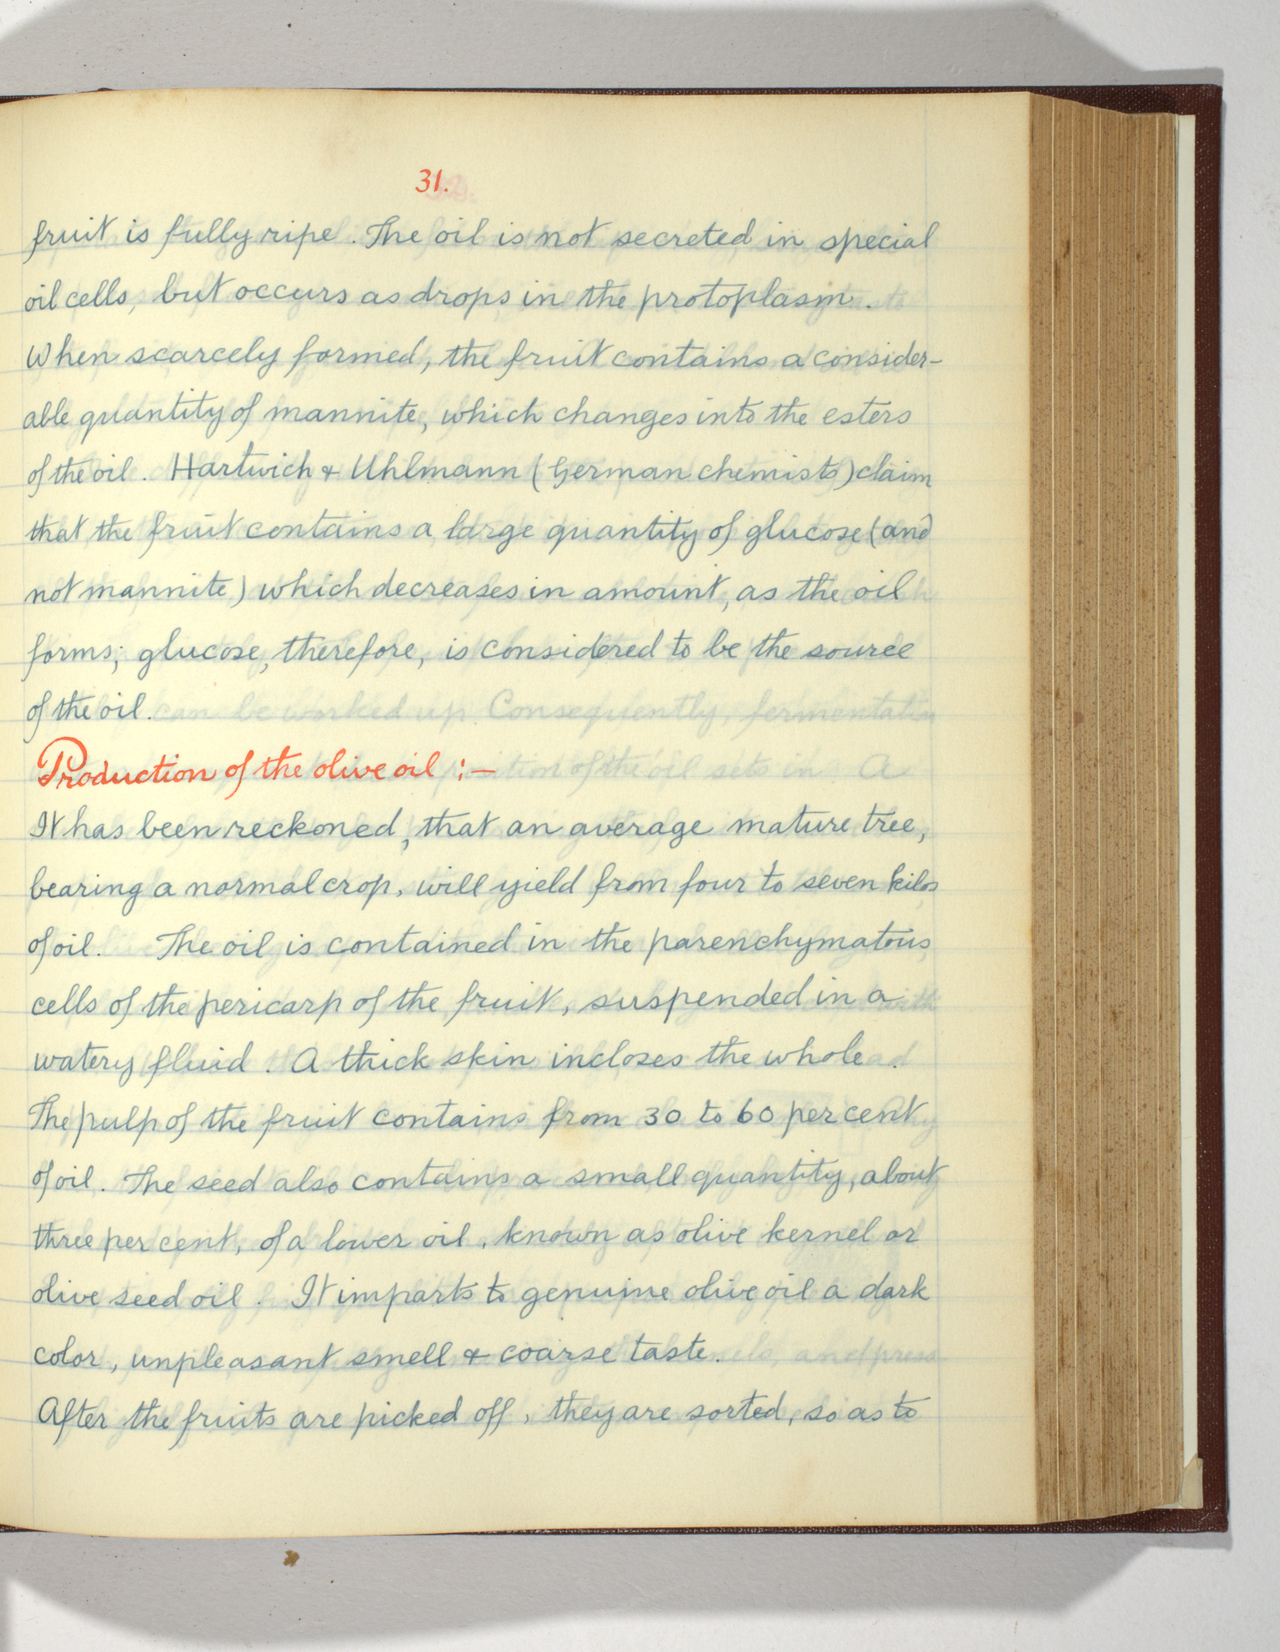 31.
fruit is fully ripe. The oil is not secreted in special
oil cells, but occurs as drops in the protoplasm.
When scarcely formed, the fruit contains a consider-
able quantity of mannite, which changes into the esters
of the oil. Hartwich & Uhlmann (German chemists) claim
that the fruit contains a large quantity of glucose (and
not mannite) which decreases in amount, as the oil
forms; glucose, therefore, is considered to be the source
of the oil.
Production of the olive oil :—
It has been reckoned, that an average mature tree,
bearing a normal crop, will yield from four to seven kilos
of oil. The oil is contained in the parenchymatous
cells of the pericarp of the fruit, suspended in a
watery fluid. A thick skin incloses the whole.
The pulp of the fruit contains from 30 to 60 per cent
of oil. The seed also contains a small quantity, about
three per cent, of a lower oil, known as olive kernel or
olive seed oil. It imparts to genuine olive oil a dark
color, unpleasant smell & coarse taste.
After the fruits are picked off, they are sorted, so as to